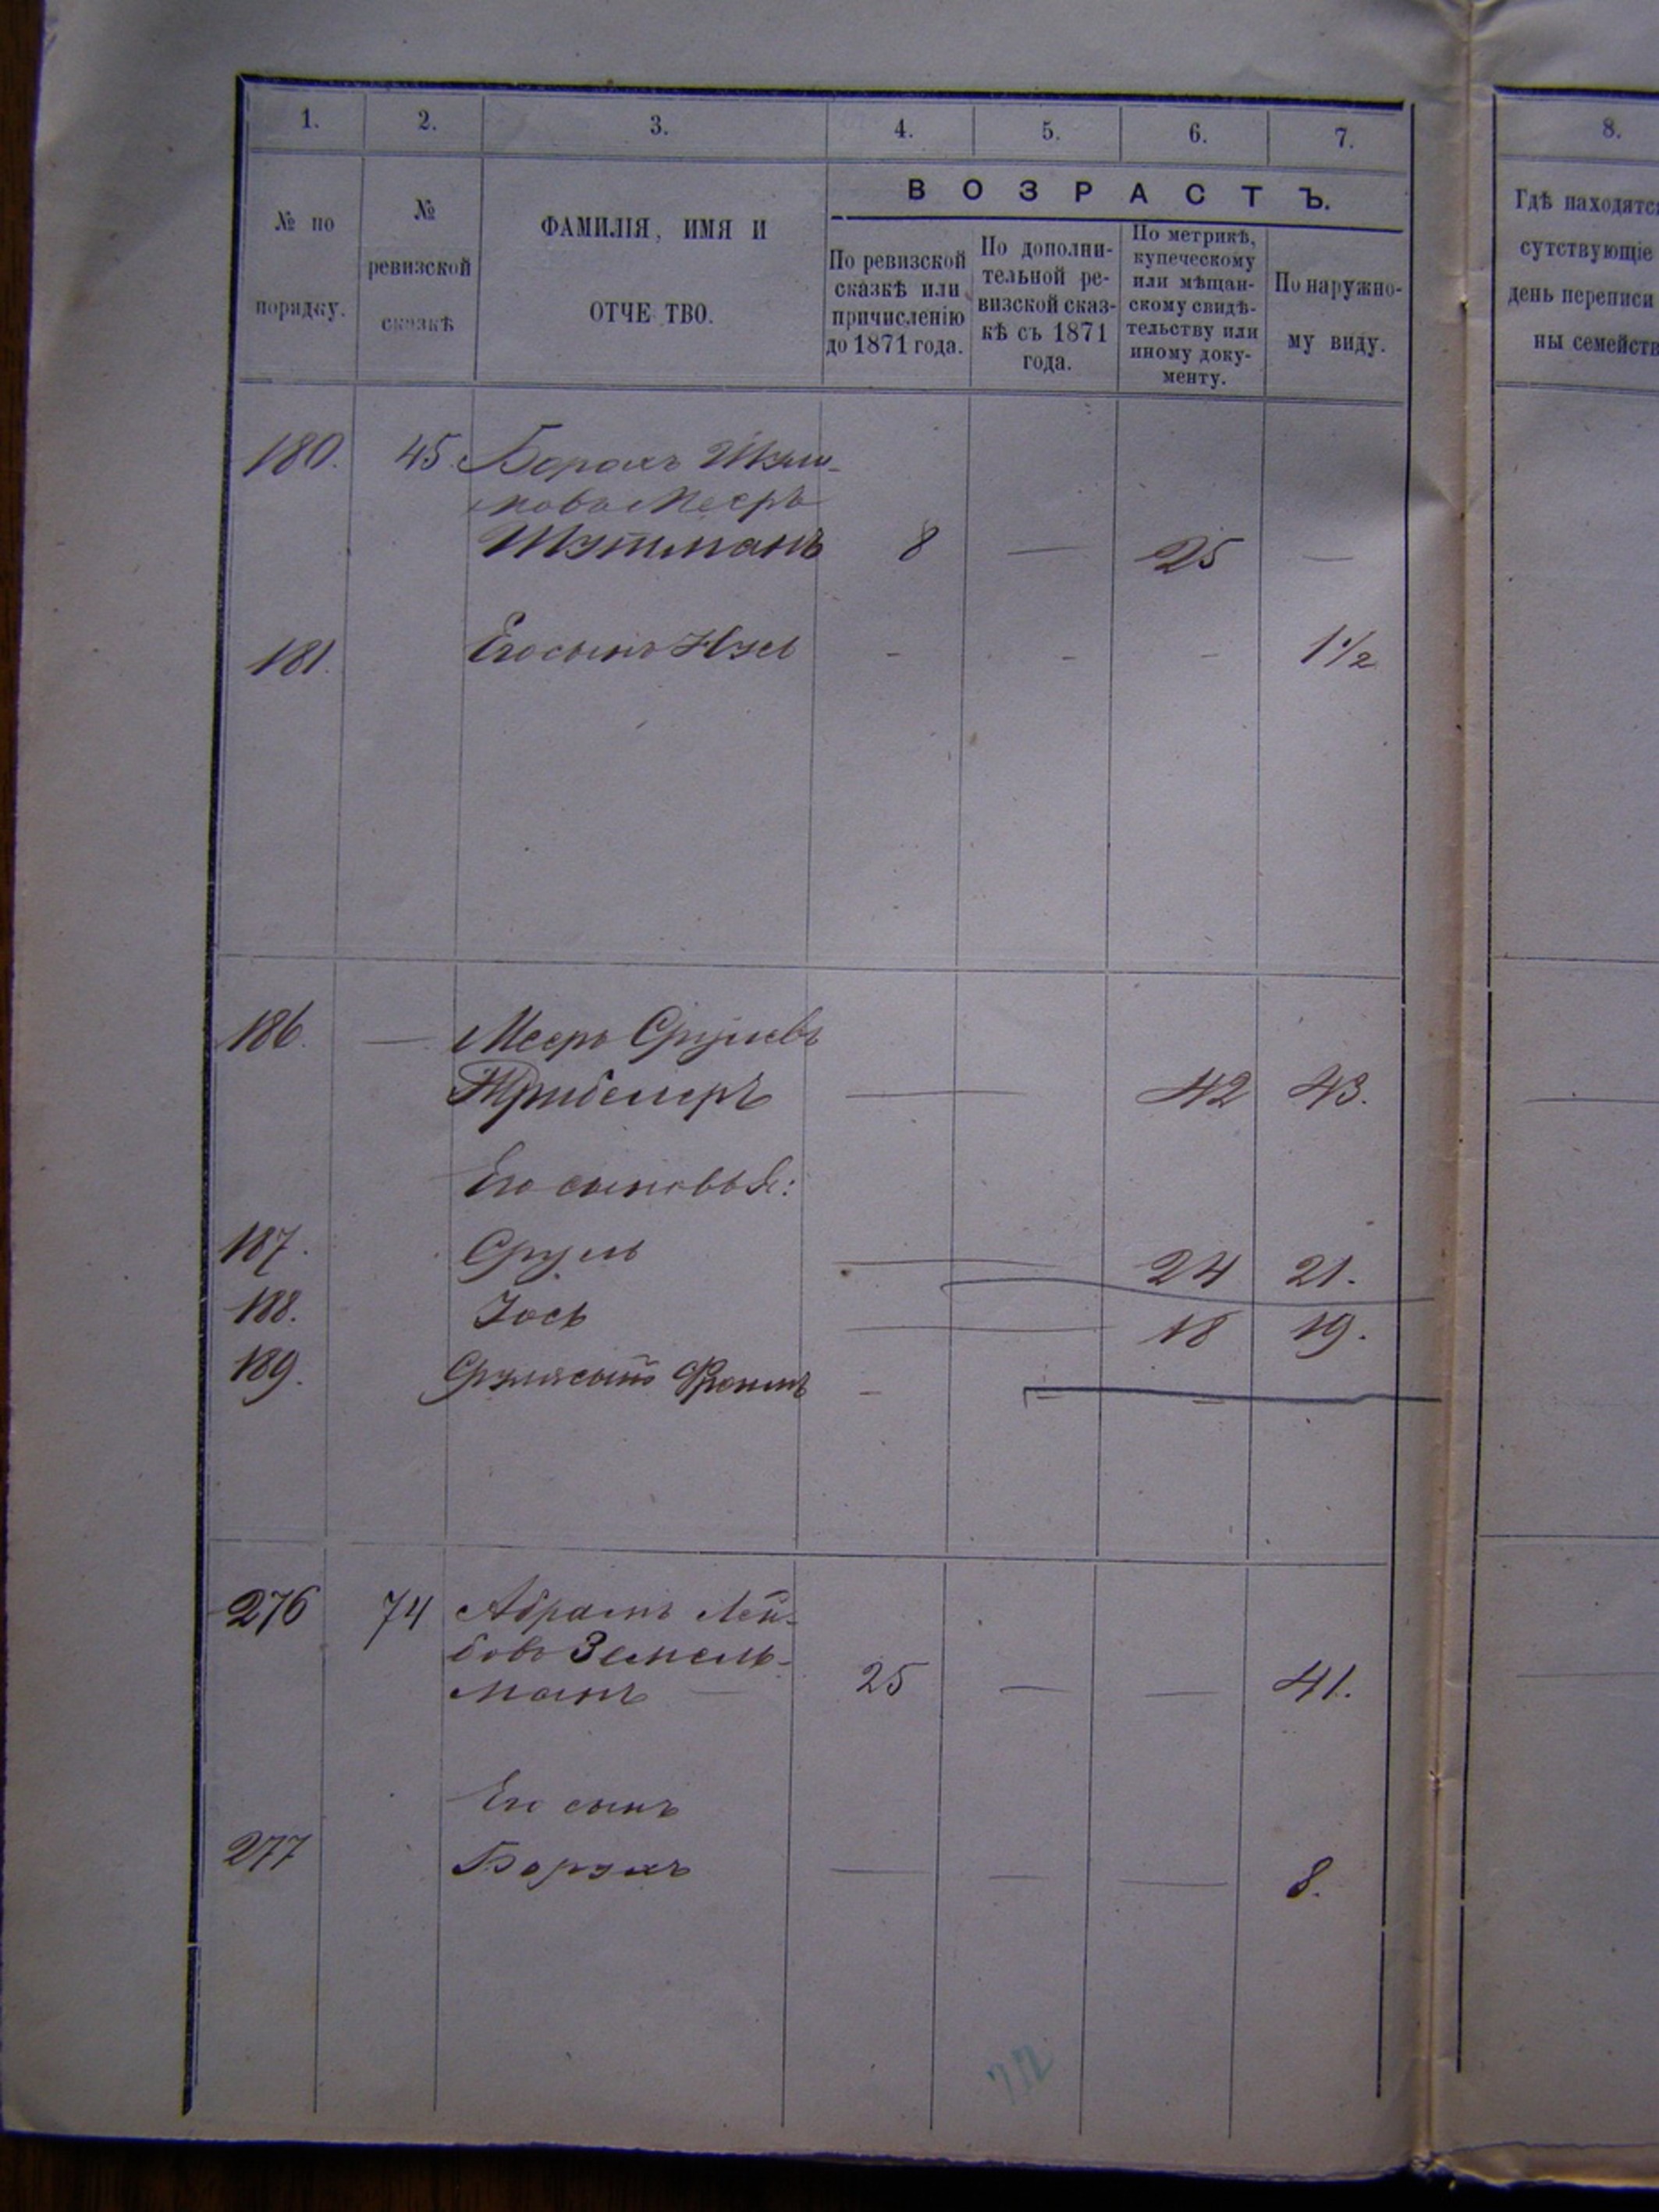 1. 2. 3. 4. 5. 6. 7. 8.
ВОЗРАСТЪ.
№ по порядку.
№ ревизской сказкѣ
ФАМИЛІЯ, ИМЯ И
ОТЧЕ ТВО.
По ревизской
сказкѣ или
причисленію
до 1871 года.
По дополни-
тельной ре-
визской сказ-
кѣ съ 1871
года.
По метрикѣ,
купеческому
или мѣщан-
скому свидѣ-
тельству или
иному доку-
менту.
По наружно-
му виду.
Гдѣ находятся
сутствующіе
день переписи
ны семейств
180. 45. Борахъ
Мееръ
8 — 25 —
181. Его сынъ - - - 1½
186. — Мееръ Срулевъ
— 42 43.
Его сыновья:
187. Сруль — 24 21.
188. Іось — 18 19.
189. Сруля сынъ Фроимъ - - -
276 74 Абрамъ Лей-
бовъ Земель-
манъ — 25 — — 41.
Его сынъ
277 Борухъ — — — 8.